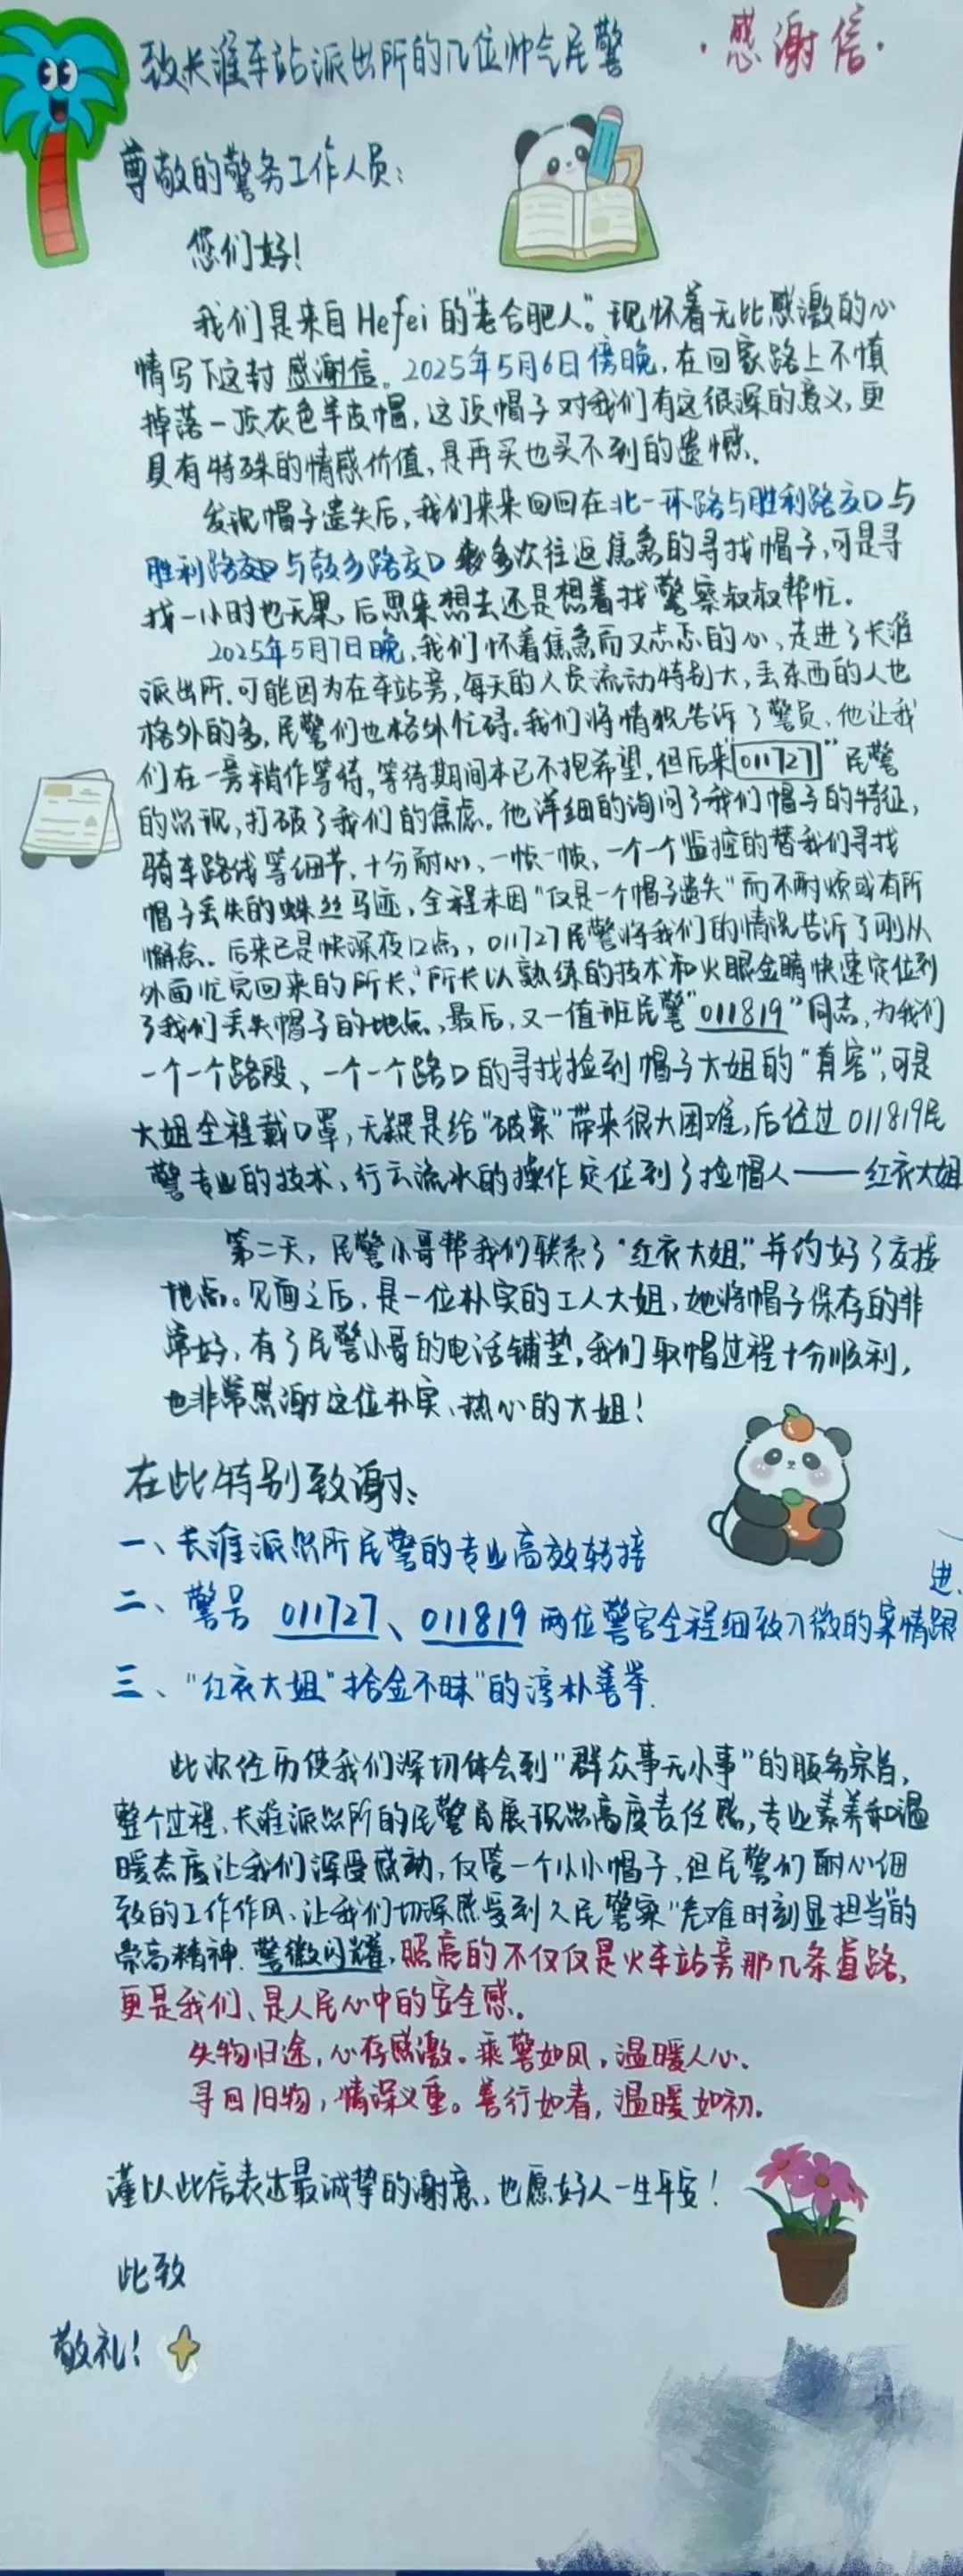 致长淮车站派出所的几位帅气民警
·感谢信·
尊敬的警务工作人员：
您们好！
我们是来自Hefei的“老合肥人”。现怀着无比感激的心
情写下这封感谢信。2025年5月6日傍晚，在回家路上不慎
掉落一顶灰色羊皮帽，这顶帽子对我们有这很深的意义，更
具有特殊的情感价值，是再买也买不到的遗憾。
发现帽子遗失后，我们来来回回在北一环路与胜利路交口与
胜利路交口与鼓乡路交口 多次往返焦急的寻找帽子，可是寻
找一小时也无果，后思来想去还是想着找警察叔叔帮忙。
2025年5月7日晚，我们怀着焦急而又忐忑的心，走进了长淮
派出所，可能因为在车站旁，每天的人员流动特别大，丢东西的人也
格外的多，民警们也格外忙碌。我们将情况告诉了警员，他让我
们在一旁稍作等待，等待期间本已不抱希望，但后来“011727”民警
的出现，打破了我们的焦虑。他详细的询问了我们帽子的特征，
骑车路线等细节，十分耐心，一帧一帧，一个一个监控的替我们寻找
帽子丢失的蛛丝马迹，全程未因“仅是一个帽子遗失”而不耐烦或有所
懈怠。后来已是快深夜12点，011727民警将我们的情况告诉了刚从
外面忙完回来的所长，所长以熟练的技术和火眼金睛快速定位到
了我们丢失帽子的地点，最后，又一值班民警“011819”同志，为我们
一个一个路段、一个一个路口的寻找捡到帽子大姐的“真容”，可是
大姐全程戴口罩，无疑是给“破案”带来很大困难，后经过011819民
警专业的技术，行云流水的操作定位到了捡帽人——红衣大姐
第二天，民警小哥帮我们联系了“红衣大姐”并约好了交接
地点。见面之后，是一位朴实的工人大姐，她将帽子保存的非
常好，有了民警小哥的电话铺垫，我们取帽过程十分顺利，
也非常感谢这位朴实、热心的大姐！
在此特别致谢：
一、长淮派出所民警的专业高效转接
二、警号 011727、011819 两位警官全程细致入微的案情跟
进.
三、“红衣大姐”拾金不昧”的淳朴善举.
此次经历使我们深切体会到“群众事无小事”的服务宗旨，
整个过程，长淮派出所的民警自展现出高度责任感，专业素养和温
暖态度让我们深受感动，仅管一个小小帽子，但民警们耐心细
致的工作作风，让我们切深感受到人民警察“危难时刻显担当”的
崇高精神. 警徽闪耀，照亮的不仅仅是火车站旁那几条道路，
更是我们、是人民心中的安全感。
失物归途，心存感激。乘警如风，温暖人心、
寻回旧物，情深义重。善行如春，温暖如初.
谨以此信表达最诚挚的谢意，也愿好人一生平安！
此致
敬礼！